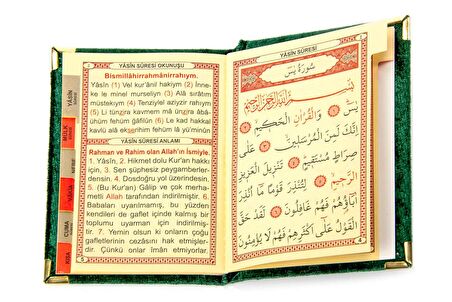 YÂSÎN SÛRESİ OKUNUŞU
Bismillâhirrahmânirrahıym.
Yâsîn (1) Vel kur'ânil hakiym (2) İnne-
ke le minel murseliyn (3) Alâ sırâtım
müstekıym (4) Tenziylel aziyzir rahiym
(5) Li tünzira kavmem mâ ünzira âbâ-
ühüm fehüm ğâfilûn (6) Le kad hakkal
kavlü alâ ekserihim fehüm lâ yü'minûn
YÂSÎN SÛRESİ ANLAMI
Rahman ve Rahim olan Allah'ın İsmiyle.
1. Yâsîn, 2. Hikmet dolu Kur'an hakkı
için, 3. Sen şüphesiz peygamberler-
densin. 4. Dosdoğru yol üzerindesin.
5. (Bu Kur'an) Gâlip ve çok merha-
metli Allah tarafından indirilmiştir. 6.
Babaları uyarılmamış, bu yüzden
kendileri de gaflet içinde kalmış bir
toplumu uyarman için indirilmiş-
tir. 7. Yemin olsun ki onların çoğu
gafletlerinin cezasını hak etmişler-
dir. Çünkü onlar îman etmiyorlar.
YÂSİN
MÜLK
CUMA
KISA
YÂSÎN SÛRESİ
سُورَةُ يٰسٓ
بِسْمِ اللّٰهِ الرَّحْمٰنِ الرَّحِيمِ
يٰسٓ ﴿١﴾ وَالْقُرْاٰنِ الْحَكِيمِ ﴿٢﴾
اِنَّكَ لَمِنَ الْمُرْسَلِينَ ﴿٣﴾ عَلٰى
صِرَاطٍ مُسْتَقِيمٍ ﴿٤﴾ تَنْزِيلَ الْعَزِيزِ
الرَّحِيمِ ﴿٥﴾ لِتُنْذِرَ قَوْمًا مَٓا اُنْذِرَ
اٰبَٓاؤُ۬هُمْ فَهُمْ غَافِلُونَ ﴿٦﴾ لَقَدْ حَقَّ
الْقَوْلُ عَلٰٓى اَكْثَرِهِمْ فَهُمْ لَا يُؤْمِنُونَ
4